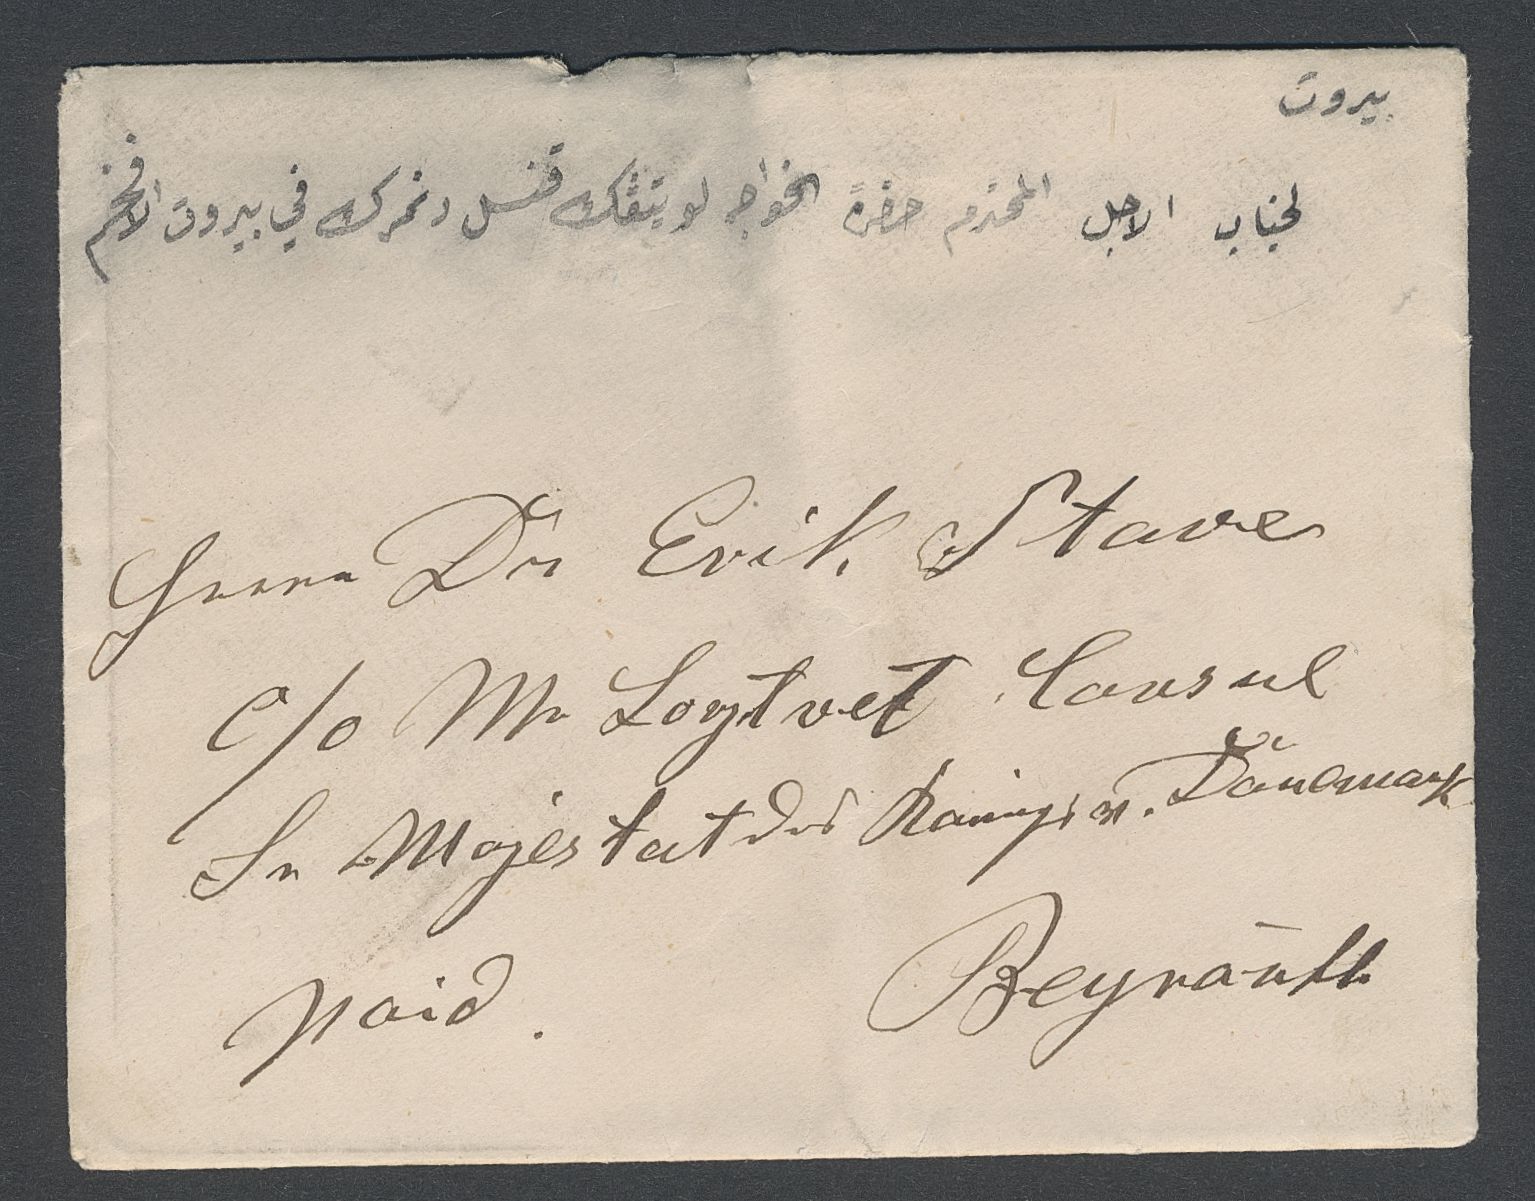 بيروت
لجناب الاجل المحترم حضرة الخواجه لويتڤك قنسل دنمرك في بيروت الافخم
Herrn Dr Erik Stave
c/o Mr Loytvet Consul
Sr Majestat des Konigs v. Dänemark
paid. Beyrauth